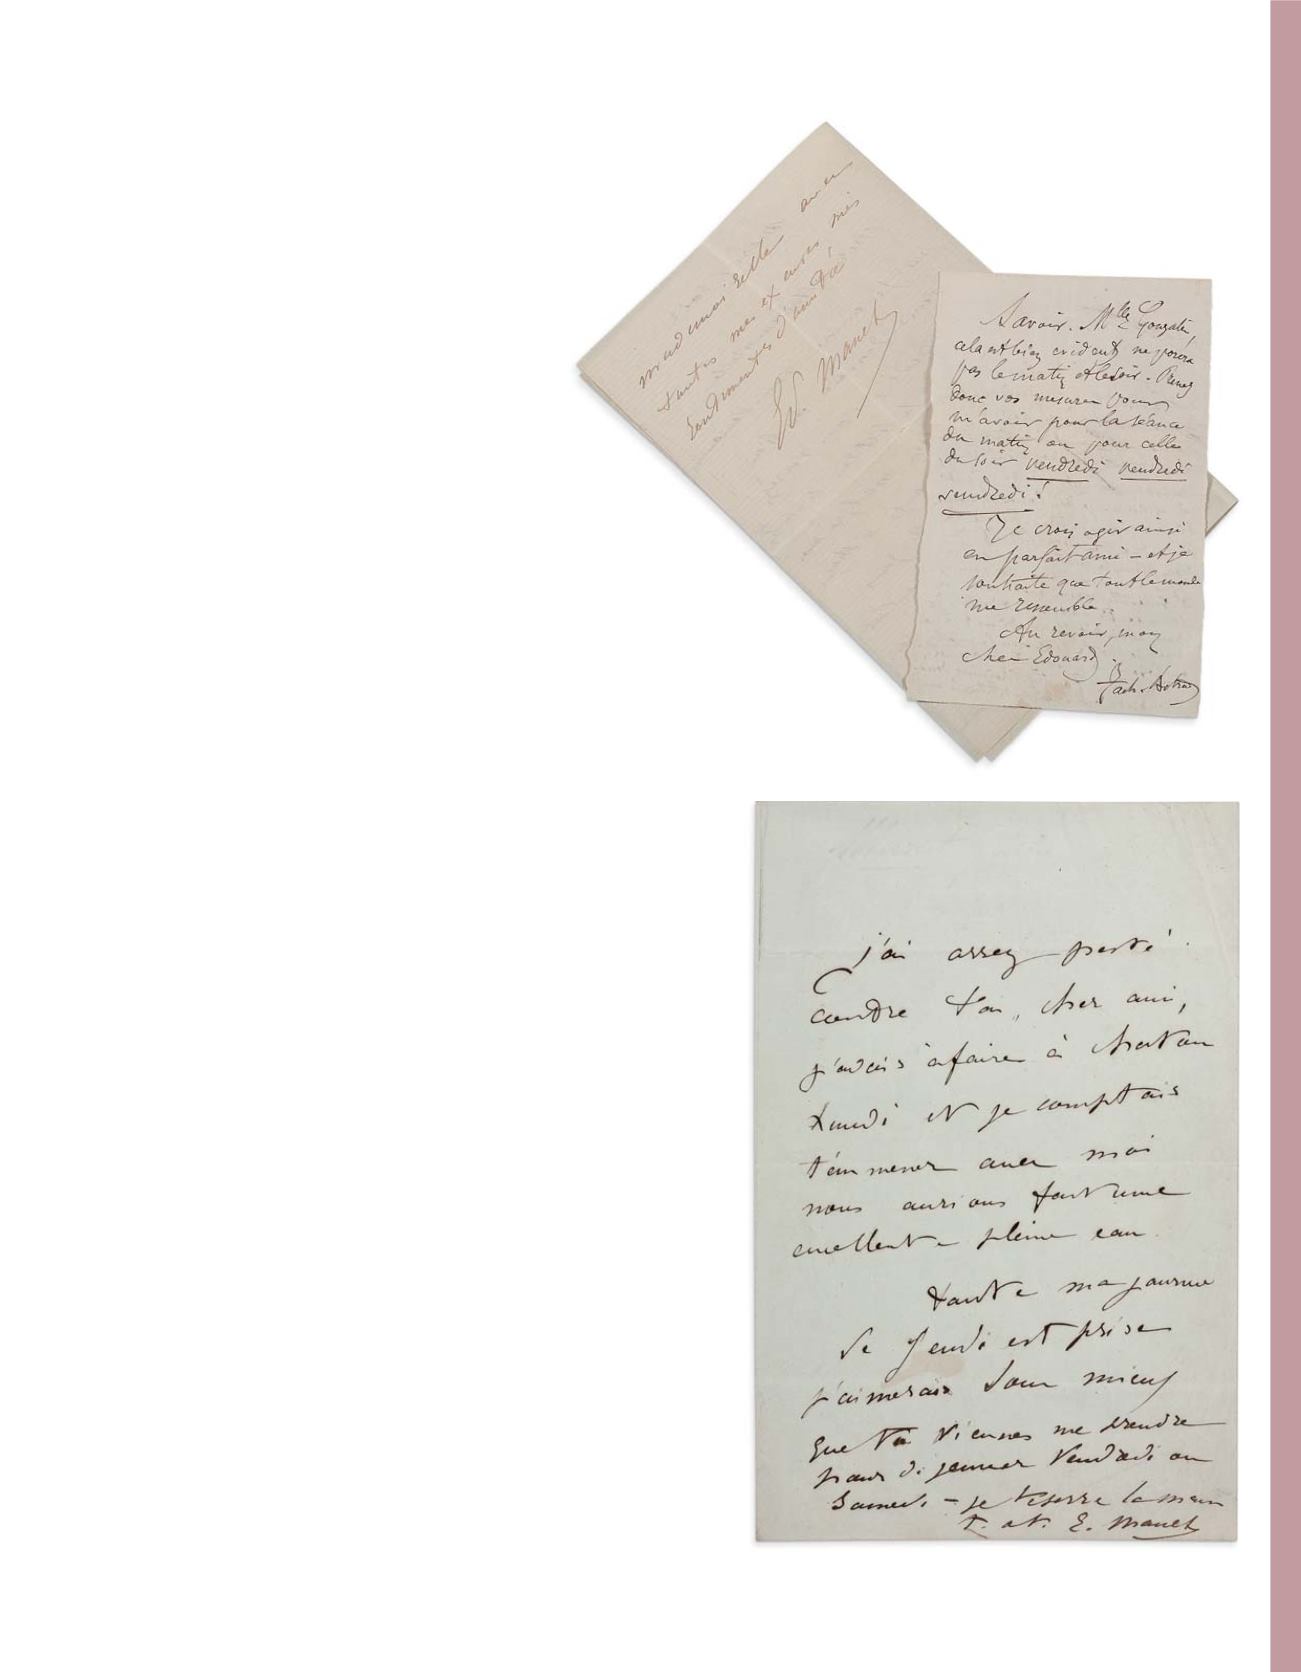 mademoiselle avec
toutes mes excuses mes
sentiments d'amitié
Ed. Manet
Savoir. Mlle Gonzalès,
cela est bien évident, ne posera
pas le matin et le soir. Prenez
donc vos mesures pour
m'avoir pour la séance
du matin ou pour celle
du soir vendredi vendredi
vendredi !
Je crois agir ainsi
en parfait ami – et je
souhaite que tout le monde
me ressemble.
Au revoir, mon
cher Edouard
Zach. Astruc
j'ai assez pesté
contre toi, cher ami,
j'avais à faire à Chatou
Lundi et je comptais
t'emmener avec moi
nous aurions fait une
excellente pleine eau.
toute ma journée
de Jeudi est prise
j'aimerais donc mieux
que tu viennes me prendre
pour déjeuner Vendredi ou
Samedi – je te serre la main
t. à t. E. Manet